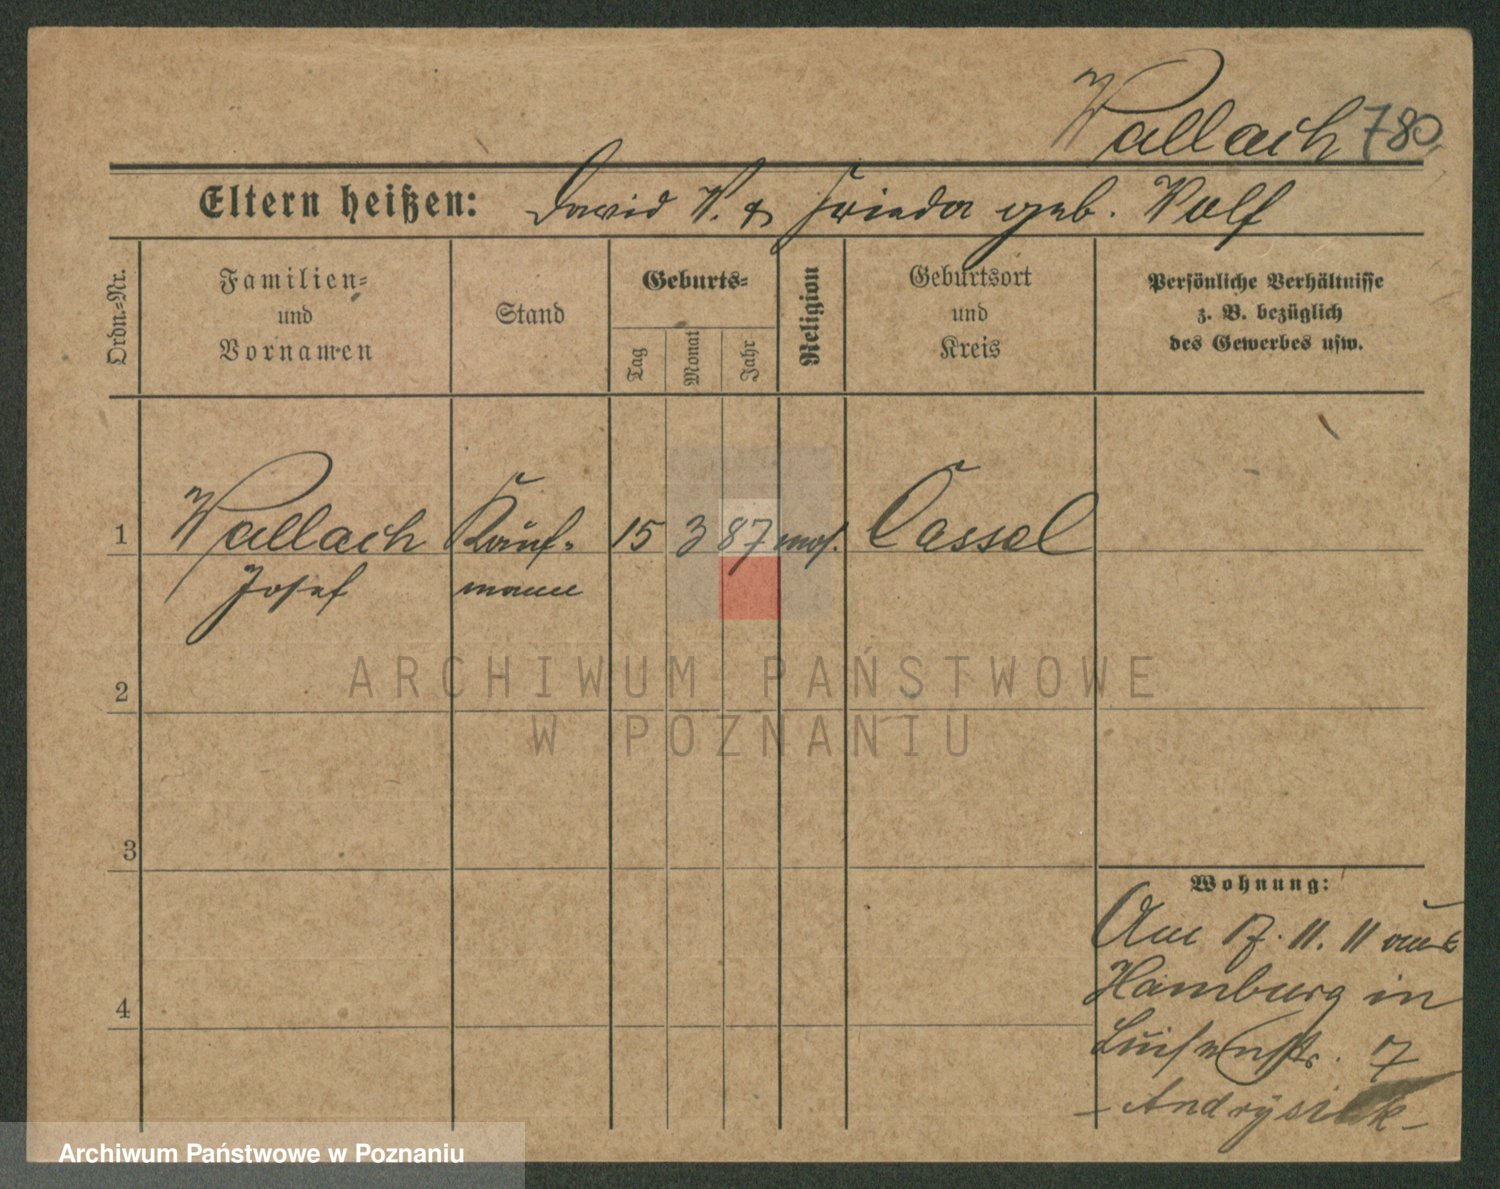 Wallach 780
Eltern heißen: David W. & Frieda geb. Wolf
Ordn.-Nr.
Familien-
und
Vornamen
Stand
Geburts-
Tag
Monat
Jahr
Religion
Geburtsort
und
Kreis
Persönliche Verhältnisse
z. B. bezüglich
des Gewerbes usw.
1 Wallach Kauf- 15 3 87 mos. Cassel
Josef mann
2
3
4
Wohnung:
Am 17. 11. 11 aus
Hamburg in
Luisenstr. 7
- Andrysiak -
ARCHIWUM PAŃSTWOWE
W POZNANIU
Archiwum Państwowe w Poznaniu